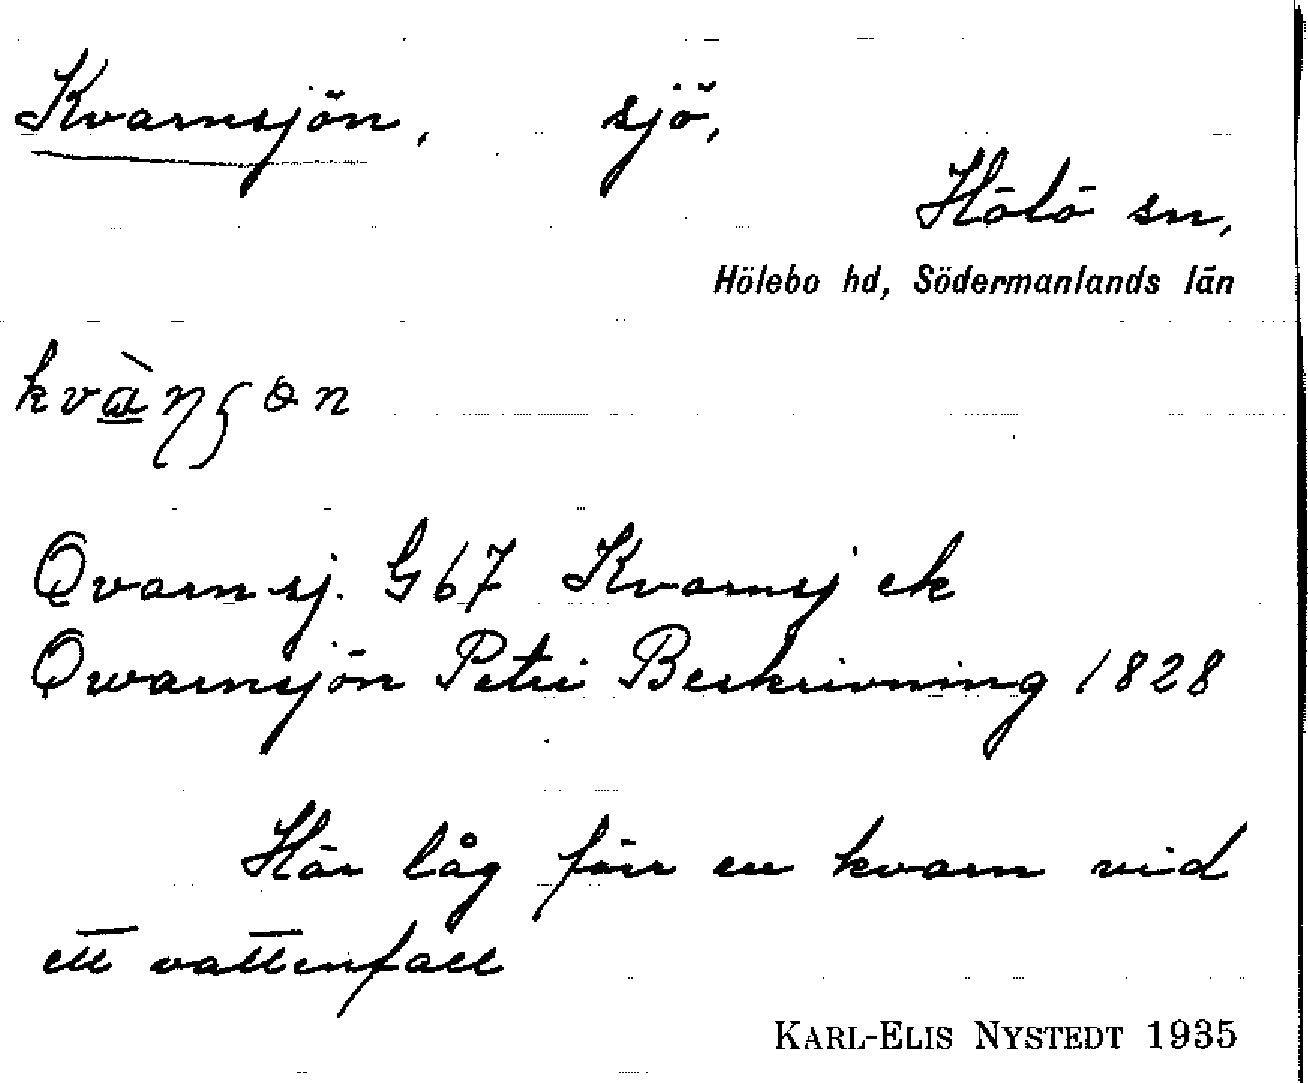 Kvarnsjön, sjö,
Hölö sn,
Hölebo hd, Södermanlands län
kvὰ̱ŋςɵn
Qvarnsj. G67 Kvarnsj ek
Qwarnsjön Petri Beskrivning 1828
Här låg förr en kvarn vid
ett vattenfall
KARL-ELIS NYSTEDT 1935